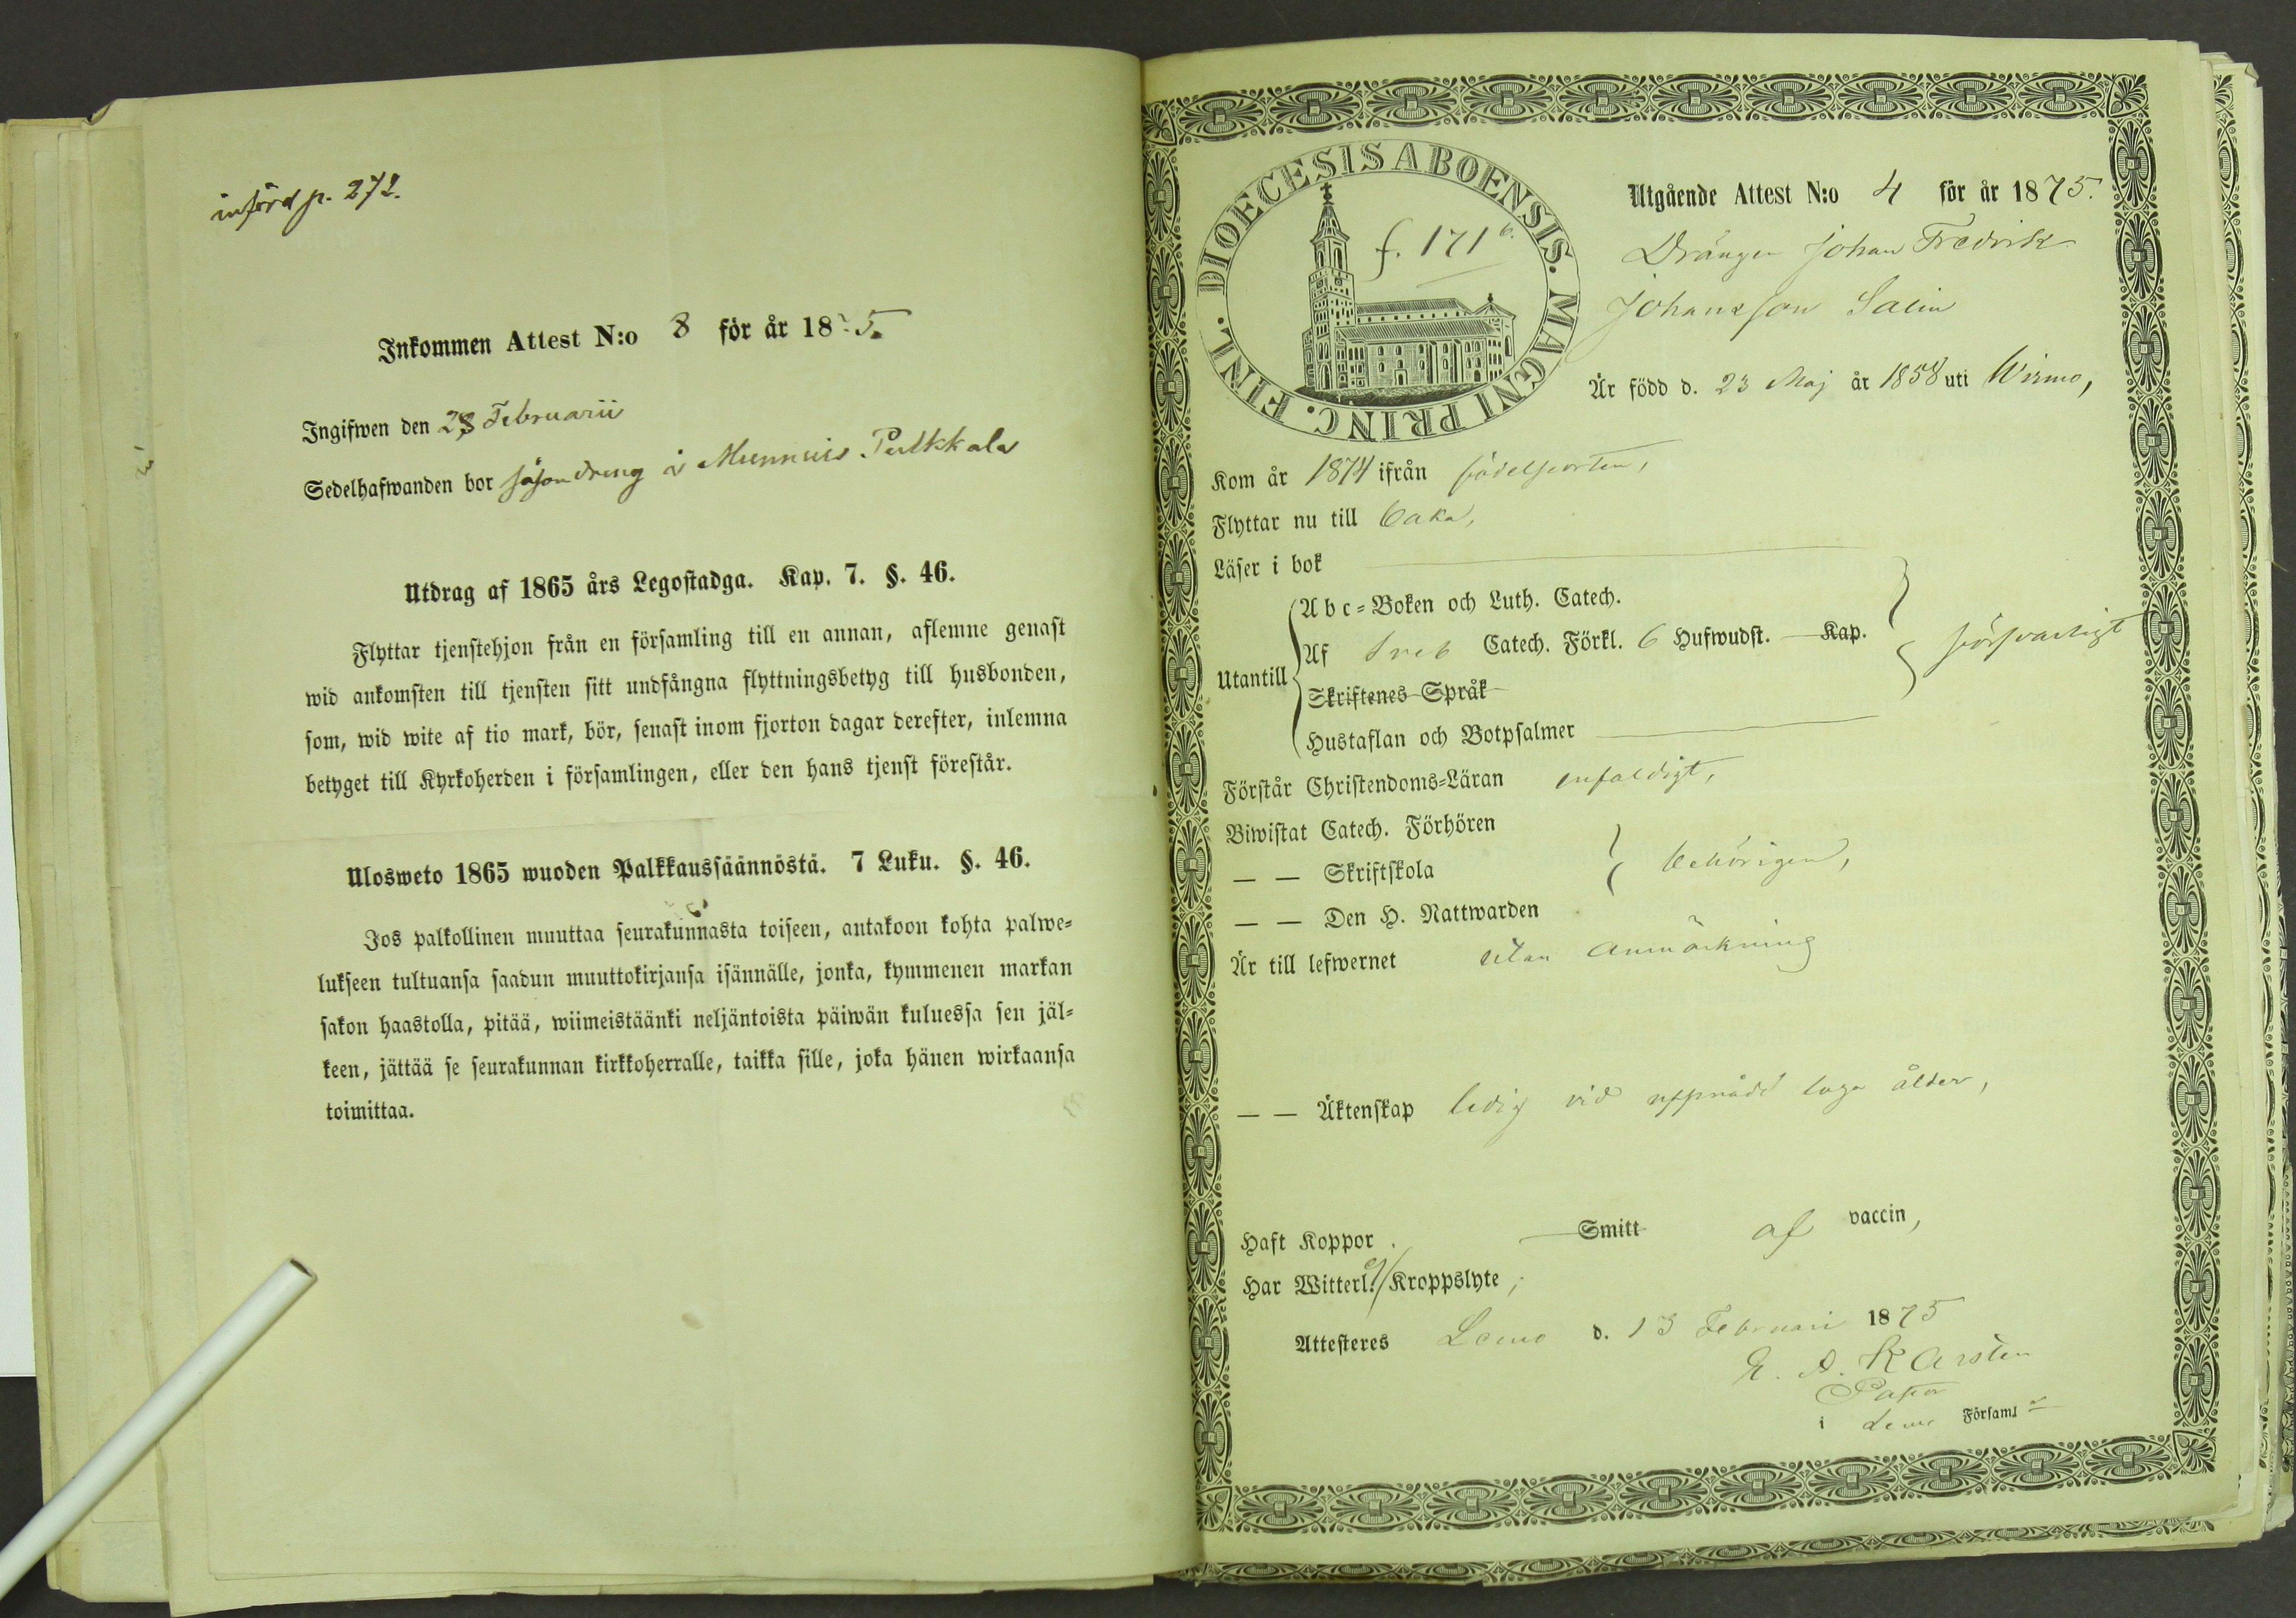 införd p. 272.
Inkommen Attest N:o 8 för år 1875.
Ingifwen den 28 Februarii
Sedelhafwanden bor såsom dreng å Munnuis Pulkkala
Utdrag af 1865 års Legostadga. Kap. 7. §. 46.
Flyttar tjenstehjon från en församling till en annan, aflemne genast
wid ankomsten till tjensten sitt undfångna flyttningsbetyg till husbonden,
som, wid wite af tio mark, bör, senast inom fjorton dagar derefter, inlemna
betyget till Kyrkoherden i församlingen, eller den hans tjenst förestår.
Ulosweto 1865 wuoden Palkkaussäännöstä. 7 Luku. §. 46.
Jos palkollinen muuttaa seurakunnasta toiseen, antakoon kohta palwe=
lukseen tultuansa saadun muuttokirjansa isännälle, jonka, kymmenen markan
sakon haastolla, pitää, wiimeistäänki neljäntoista päiwän kuluessa sen jäl=
keen, jättää se seurakunnan kirkkoherralle, taikka sille, joka hänen wirkaansa
toimittaa.
DIOECESIS ABOENSIS. MAGNI PRINC. FINL.
f. 171 b.
Utgående Attest N:o 4 för år 1875.
Drängen Johan Fredrik
Johansson Salin
Är född d. 23 Maj år 1858 uti Wirmo,
Kom år 1874 ifrån födelseorten,
Flyttar nu till
Läser i bok
Abc=Boken och Luth. Catech.
Utantill Af Sveb Catech. Förkl. 6 Hufwudst. Kap. försvarligt
Skriftenes Språk
Hustaflan och Botpsalmer
Förstår Christendoms=Läran enfaldigt,
Biwistat Catech. Förhören
— — Skriftskola behörigen,
— — Den H. Nattwarden
Är till lefwernet utan anmärkning
— — Äktenskap ledig vid uppnådd laga ålder,
Haft Koppor Smitt af vaccin,
Har Witterl. ej Kroppslyte,
Attesteres Lemo d. 13 Februari 1875
E. A. Karsten
Pastor
i Lemo Församl